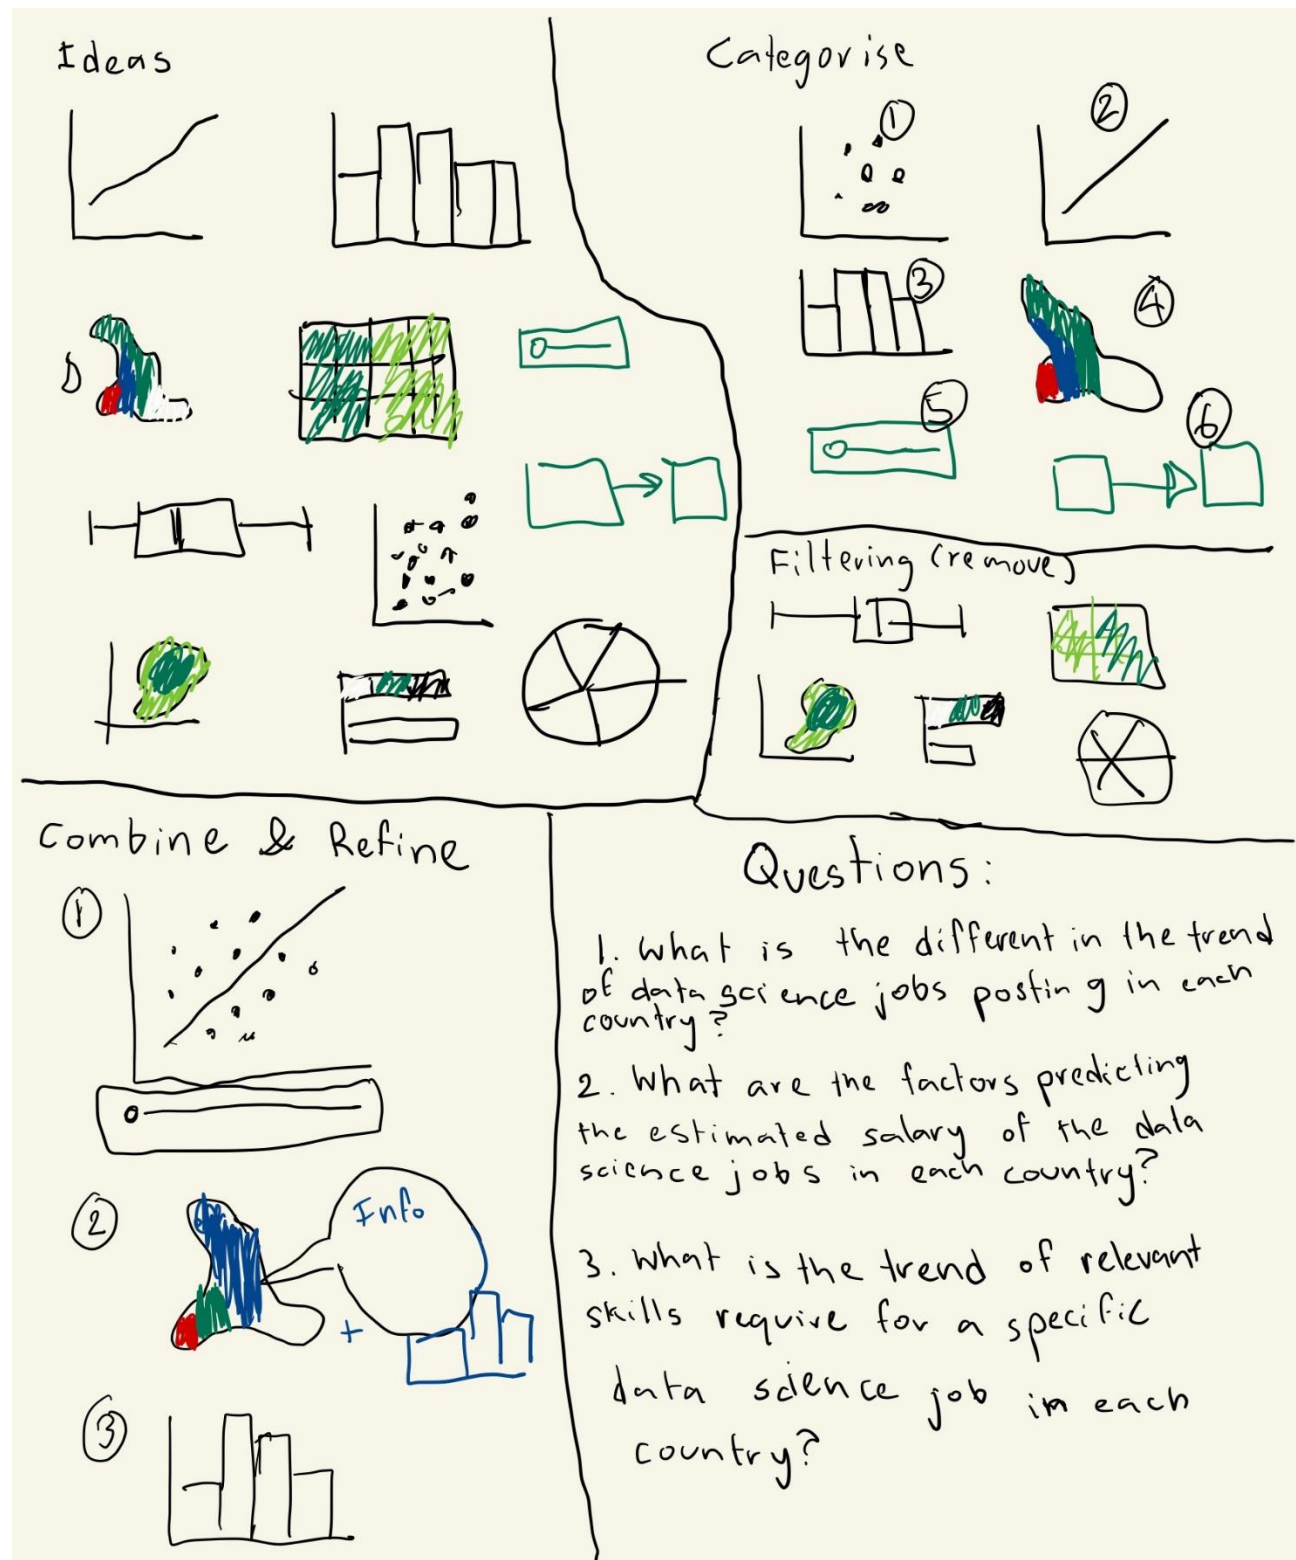 Ideas
Categorise
①
②
③
④
⑤
⑥
Filtering (remove)
Combine & Refine
①
②
Info
+
③
Questions:
1. What is the different in the trend
of data science jobs posting in each
country?
2. What are the factors predicting
the estimated salary of the data
science jobs in each country?
3. What is the trend of relevant
skills require for a specific
data science job in each
country?